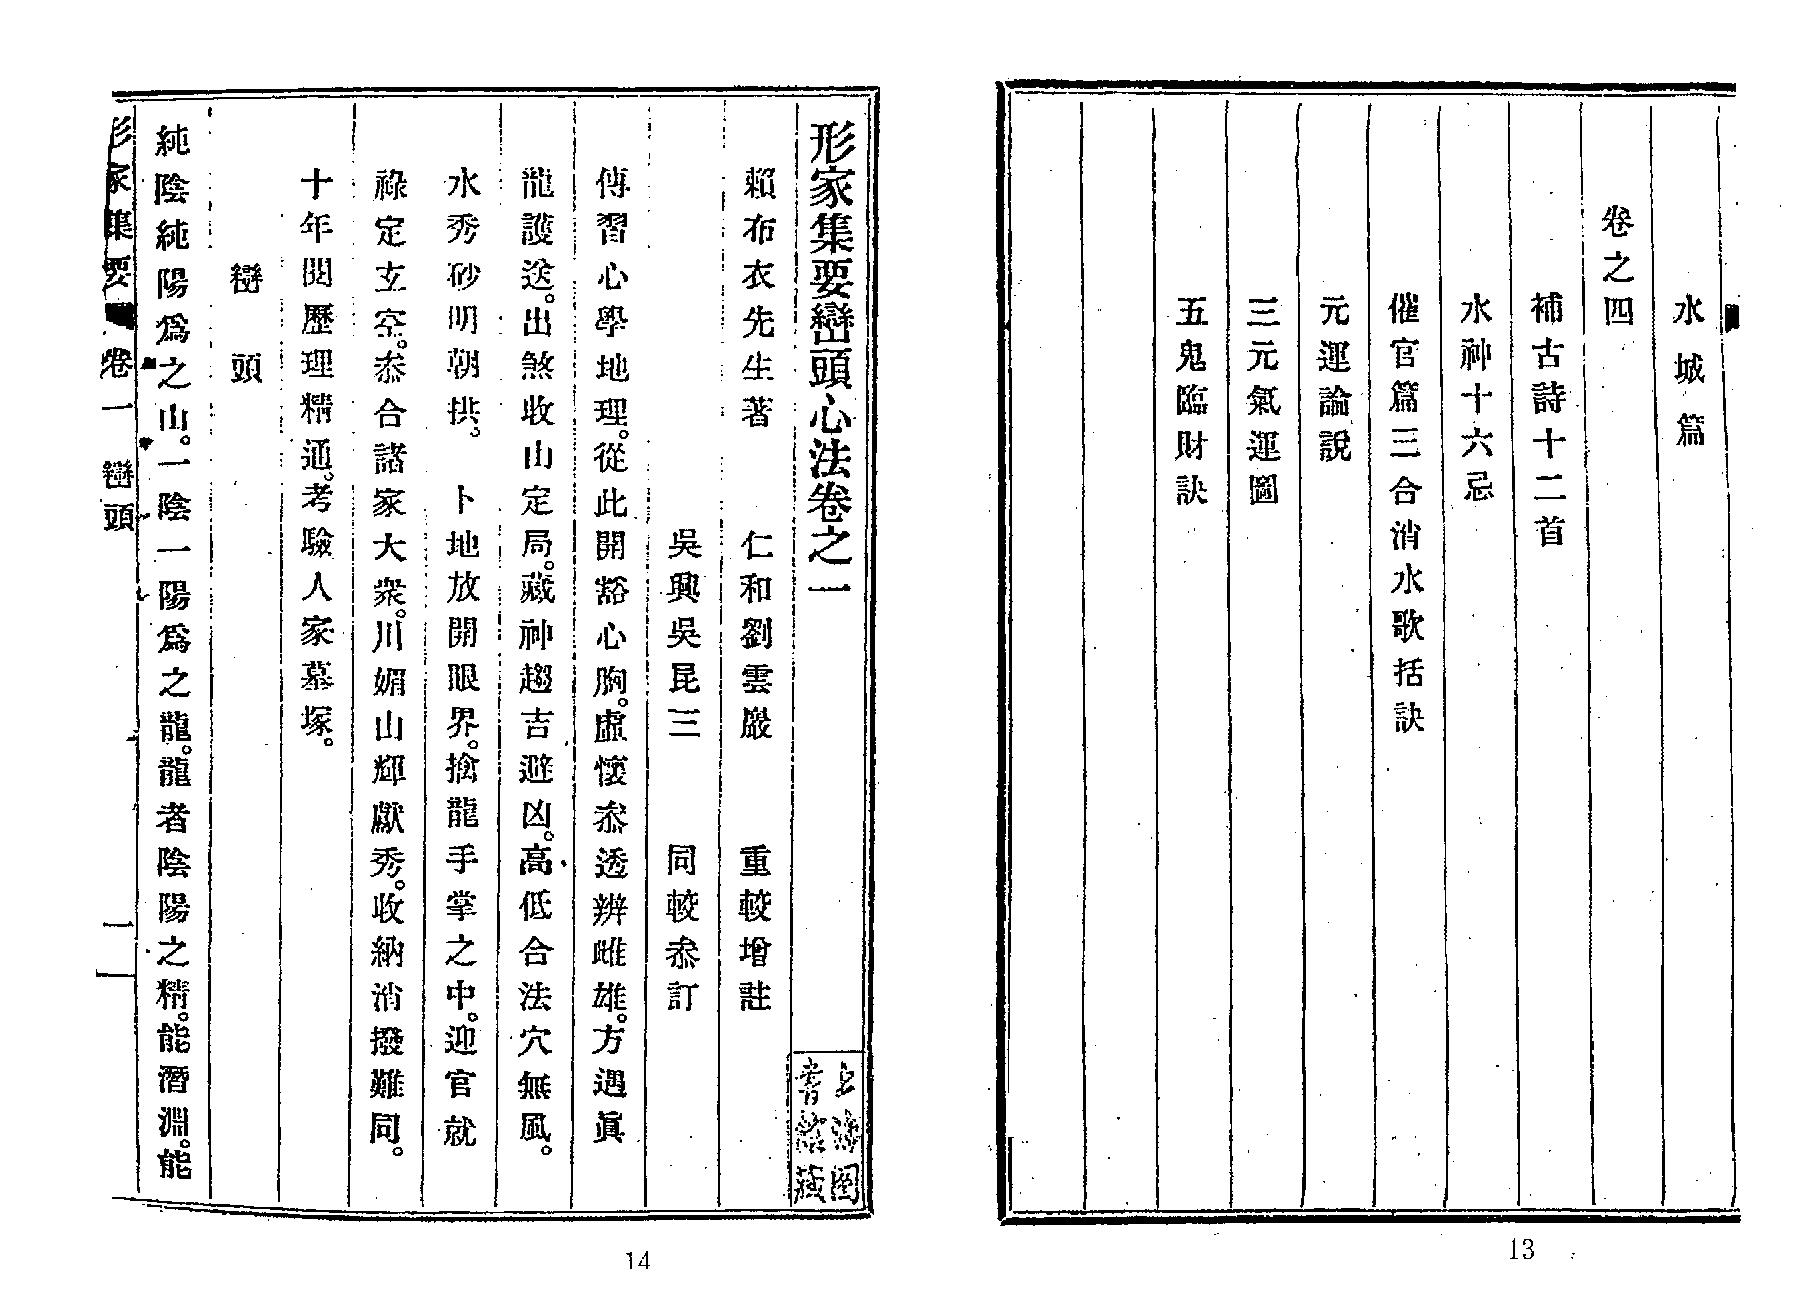 水城篇
卷之四
補古詩十二首
水神十六忌
催官篇三合消水歌括訣
元運論說
三元氣運圖
五鬼臨財訣
13
形家集要巒頭心法卷之一
賴布衣先生著 仁和劉雲巖 重較增註
吳興吳昆三 同較叅訂
傳習心學地理。從此開豁心胸。虛懷叅透辨雌雄。方遇眞
龍護送。出煞收山定局。藏神趨吉避凶。高低合法穴無風。
水秀砂明朝拱。 卜地放開眼界。擒龍手掌之中。迎官就
祿定玄空。叅合諸家大衆。川媚山輝獻秀。收納消撥難同。
十年閱歷理精通。考驗人家墓塚。
巒頭
純陰純陽爲之山。一陰一陽爲之龍。龍者陰陽之精。能潛淵。能
形家集要 卷一 巒頭 一
上海圖
書館藏
14